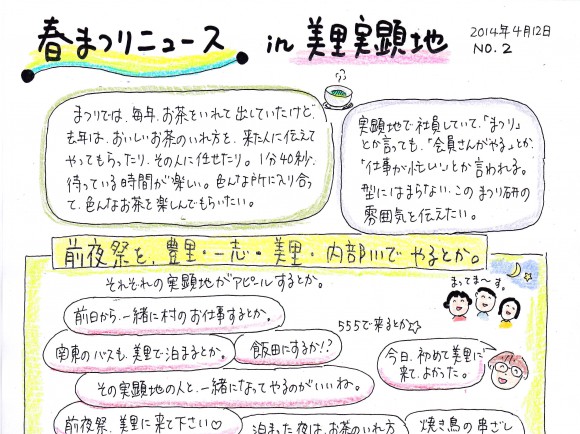 春まつりニュース in 美里実顕地
2014年4月12日
NO.2
まつりでは、毎年、お茶をいれて出していたけど、
去年は、おいしいお茶のいれ方を、来た人に伝えて
やってもらったり、その人に任せたり。1分40秒、
待っている時間が楽しい。色んな所に入り合っ
て、色んなお茶を楽しんでもらいたい。
実顕地で社員していて、「まつり」
とか言っても、「会員さんがやる」とか、
「仕事が忙しい」とか言われる。
型にはまらない、このまつり研の
雰囲気を伝えたい。
前夜祭を、豊里・一志・美里・内部川でやるとか。
それぞれの実顕地がアピールするとか。
まってま〜す。
前日から、一緒に村のお仕事するとか。
555で来るとか☆
関東のバスも、美里で泊まるとか。
飯田にするか!?
今日、初めて美里に
来て、よかった。
その実顕地の人と、一緒になってやるのがいいね。
前夜祭、美里に来て下さい♡
泊まった夜は、お茶のいれ方
焼き鳥の串ざし